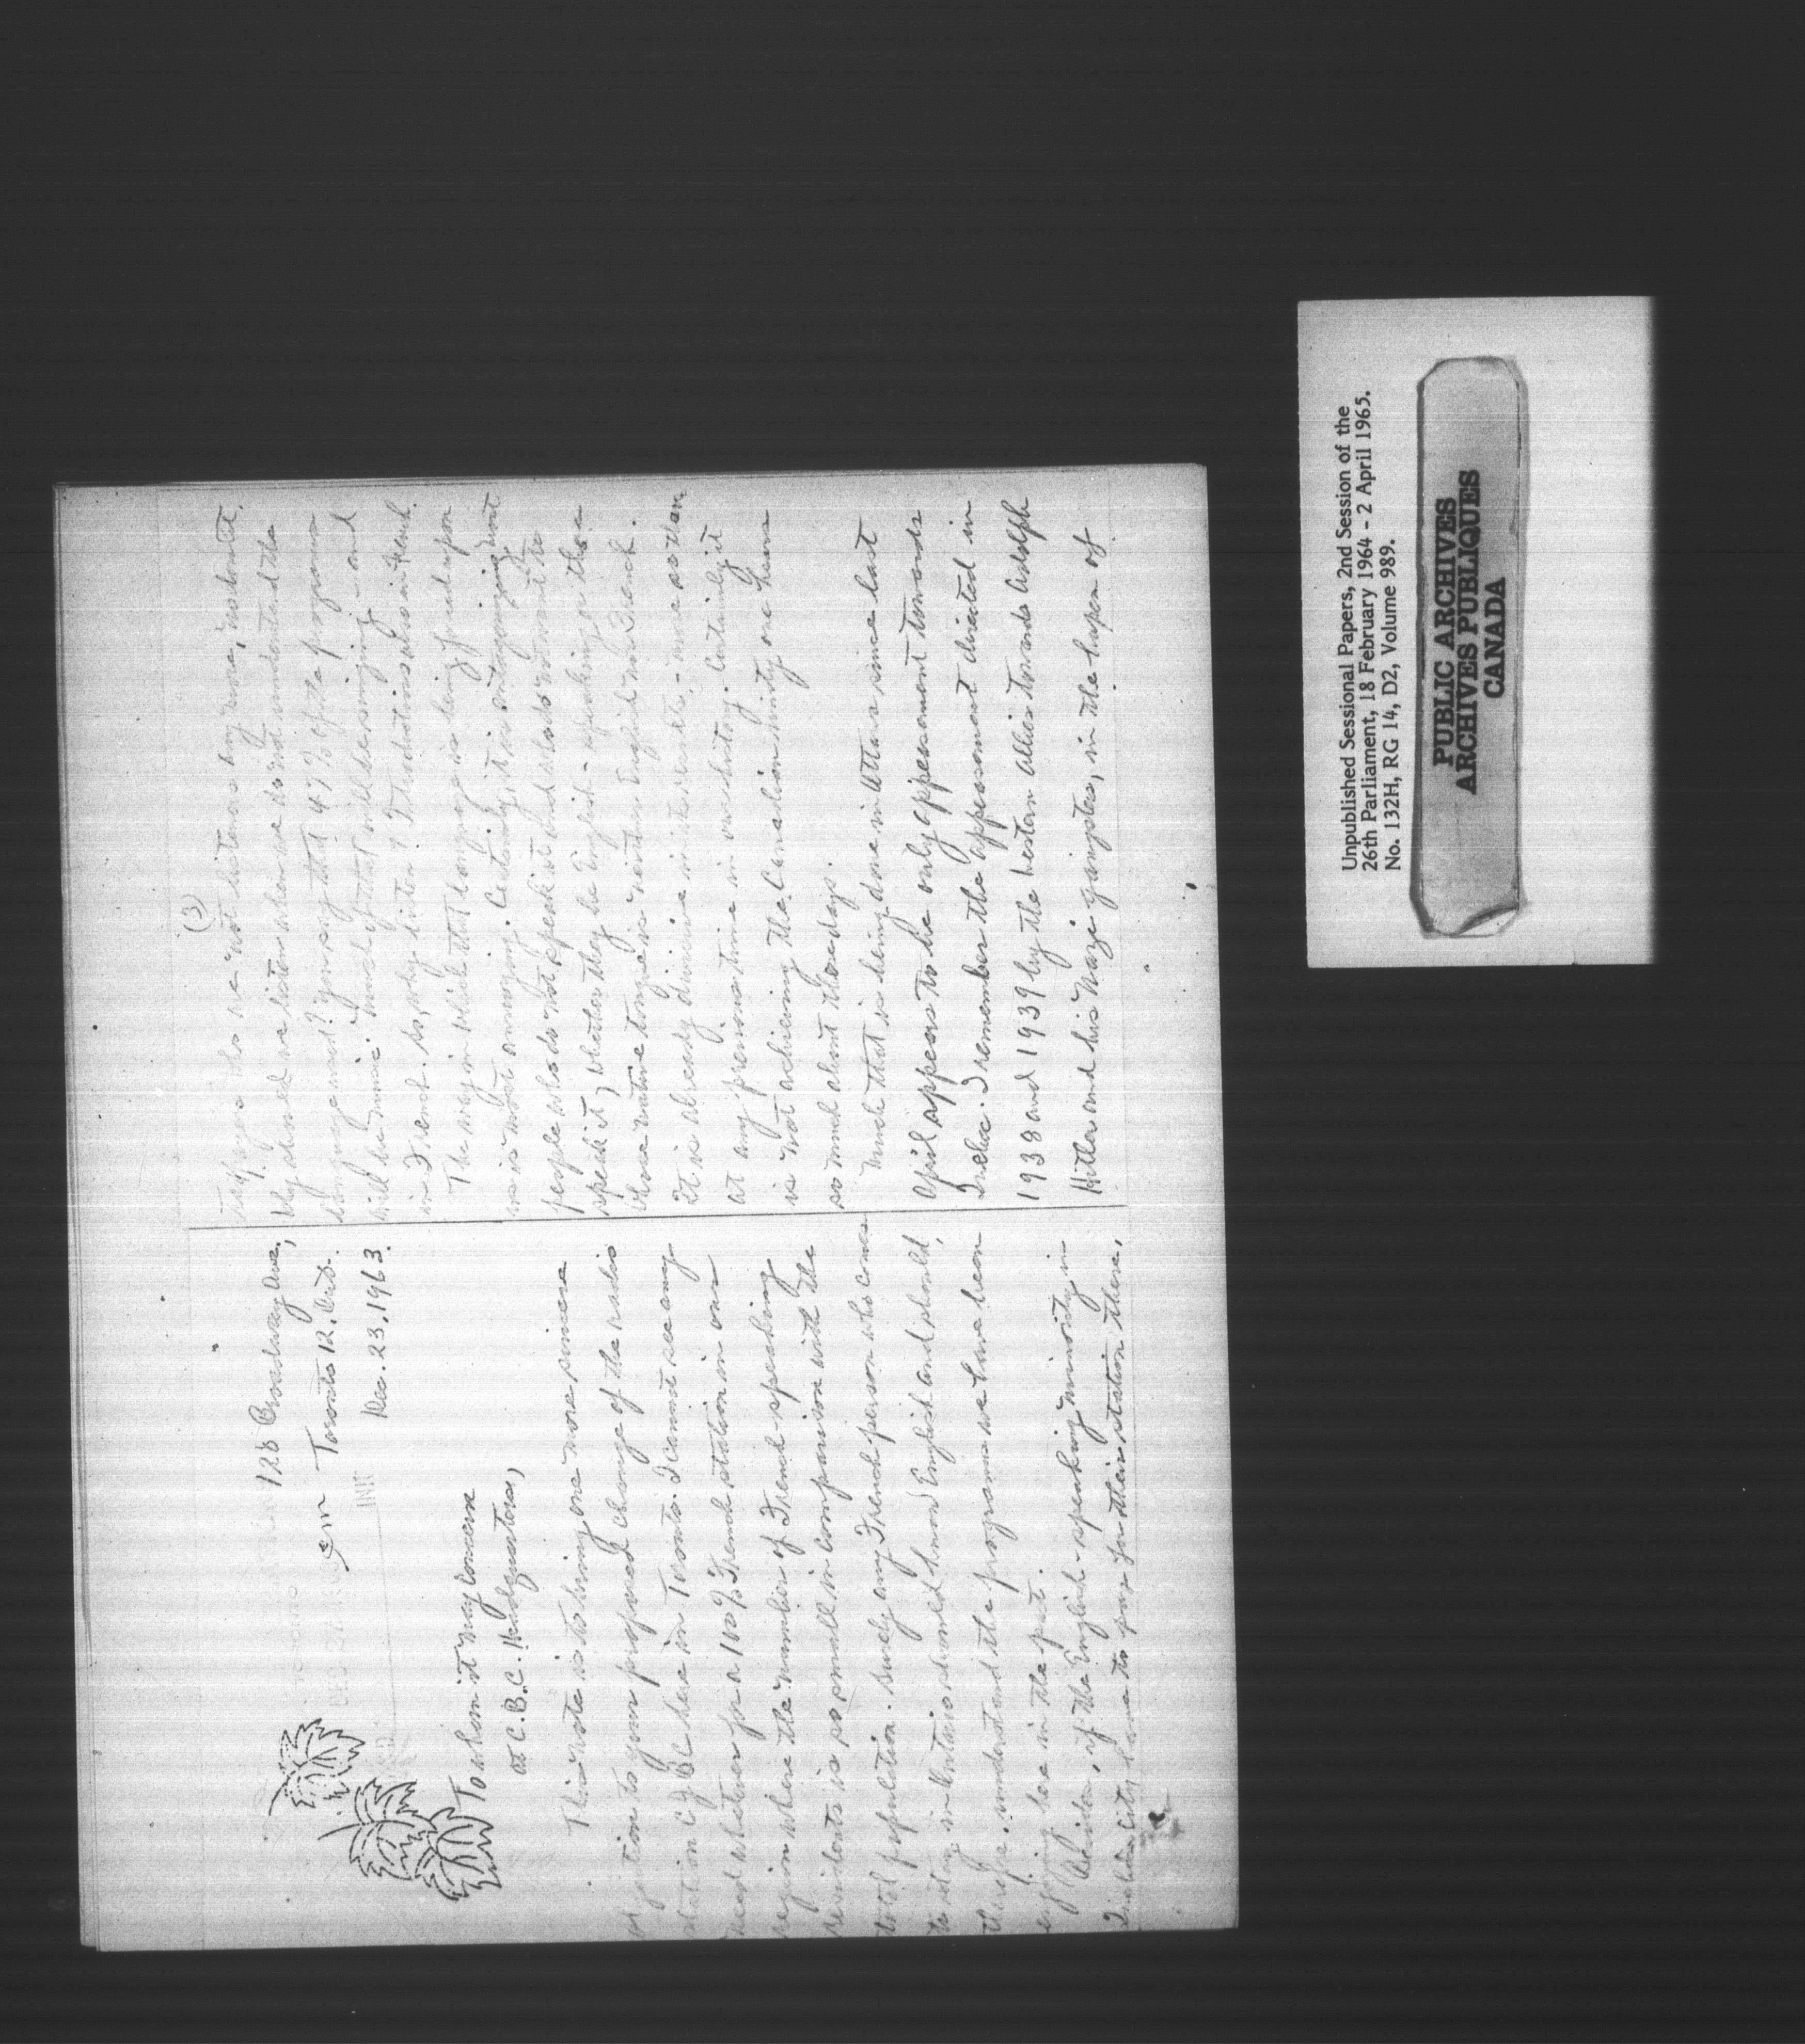 128 Broadway Ave.,
Toronto 12, Ont.
Dec. 23, 1963.
DEC 27 1963
INIT
To whom it may concern
at C.B.C. Headquarters,
This note is to bring one more sincere
objection to your proposed change of the radio
station CJBC here in Toronto. I cannot see any
need whatever for a 100% French station in our
region where the number of French-speaking
residents is so small in comparison with the
total population. Surely any French person who comes
to stay in Ontario should know English and should,
therefore, understand the programs we have been
enjoying here in the past.
Besides, if the English-speaking minority in
Quebec City have to pay for their station there,
(3)
taxpayers who are not listeners any more,
Why should we listen when we do not understand the
language used? You say that 47% of the programs
will be music. Much of that will be singing - and
in French. So, why listen? Introductions also in French.
The way in which that language is being forced upon
us is most annoying. Certainly, it is antagonizing most
people who do not speak it and who do not want to
speak it, whether they be English-speaking or those
whose native tongue is neither English nor French.
It is already divisive in its results, - more so than
at any previous time in our history. Certainly it
is not achieving the Canadian unity one hears
so much about these days.
Much that is being done in Ottawa since last
April appears to be only appeasement towards
Quebec. I remember the appeasement directed in
1938 and 1939 by the Western Allies towards Adolph
Hitler and his Nazi gangsters, in the hopes of
Unpublished Sessional Papers, 2nd Session of the
26th Parliament, 18 February 1964 - 2 April 1965.
No. 132H, RG 14, D2, Volume 989.
PUBLIC ARCHIVES
ARCHIVES PUBLIQUES
CANADA